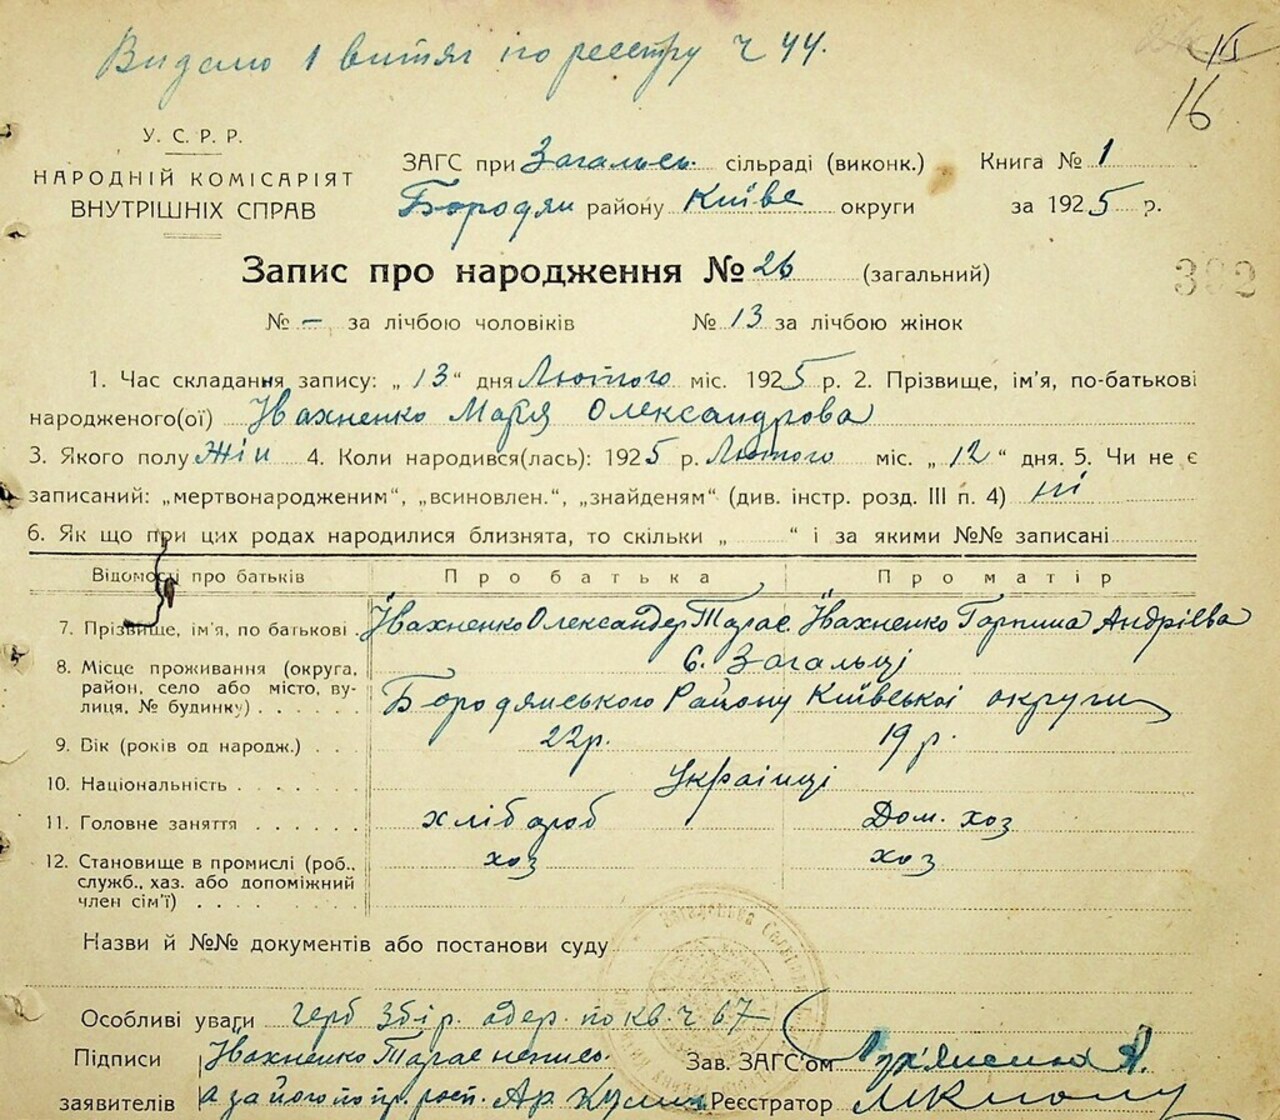 Видано 1 витяг по реєстру ч 44.
16
У. С. Р. Р.
НАРОДНІЙ КОМІСАРІЯТ
ВНУТРІШНІХ СПРАВ
ЗАГС при Загальсь. сільраді (виконк.) Книга № 1
Бородян району Київс округи за 1925 р.
Запис про народження № 26 (загальний)
392
№ – за лічбою чоловіків № 13 за лічбою жінок
1. Час складання запису: „ 13 “ дня Лютого міс. 1925 р. 2. Прізвище, ім'я, по-батькові
народженого(ої) Івахненко Марія Олександрова
3. Якого полу Жін 4. Коли народився(лась): 1925 р. Лютого міс. „ 12 “ дня. 5. Чи не є
записаний: „мертвонародженим“, „всиновлен.“, „знайденям“ (див. інстр. розд. III п. 4) ні
6. Як що при цих родах народилися близнята, то скільки „ “ і за якими №№ записані
Відомості про батьків Про батька Про матір
7. Прізвище, ім'я, по батькові Івахненко Олександер Тарас. Івахненко Горпина Андрієва
8. Місце проживання (округа, с. Загальці
район, село або місто, ву-
лиця, № будинку) Бородянського Району Київської округи
9. Вік (років од народж.) 22р. 19 р.
10. Національність Українці
11. Головне заняття хлібороб Дом. хоз
12. Становище в промислі (роб., хоз хоз
служб., хаз. або допоміжний
член сім'ї)
Назви й №№ документів або постанови суду
Особливі уваги герб збір. одер. по кв. ч 67
Підписи Івахненко Тарас неписьм. Зав. ЗАГС'ом
заявителів а за його по пр. росп. Реєстратор